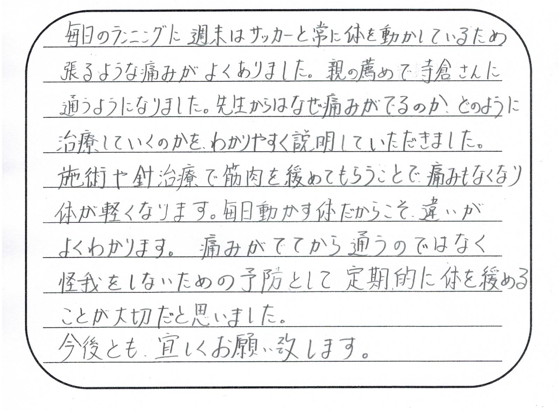 毎日のランニングに 週末はサッカーと常に体を動かしているため
張るような痛みがよくありました。親の薦めで寺倉さんに
通うようになりました。先生からはなぜ痛みがでるのか、どのように
治療していくのかを、わかりやすく説明していただきました。
施術や針治療で筋肉を緩めてもらうことで、痛みもなくなり
体が軽くなります。毎日動かす体だからこそ、違いが
よくわかります。 痛みがでてから通うのではなく
怪我をしないための予防として 定期的に体を緩める
ことが大切だと思いました。
今後とも、宜しくお願い致します。